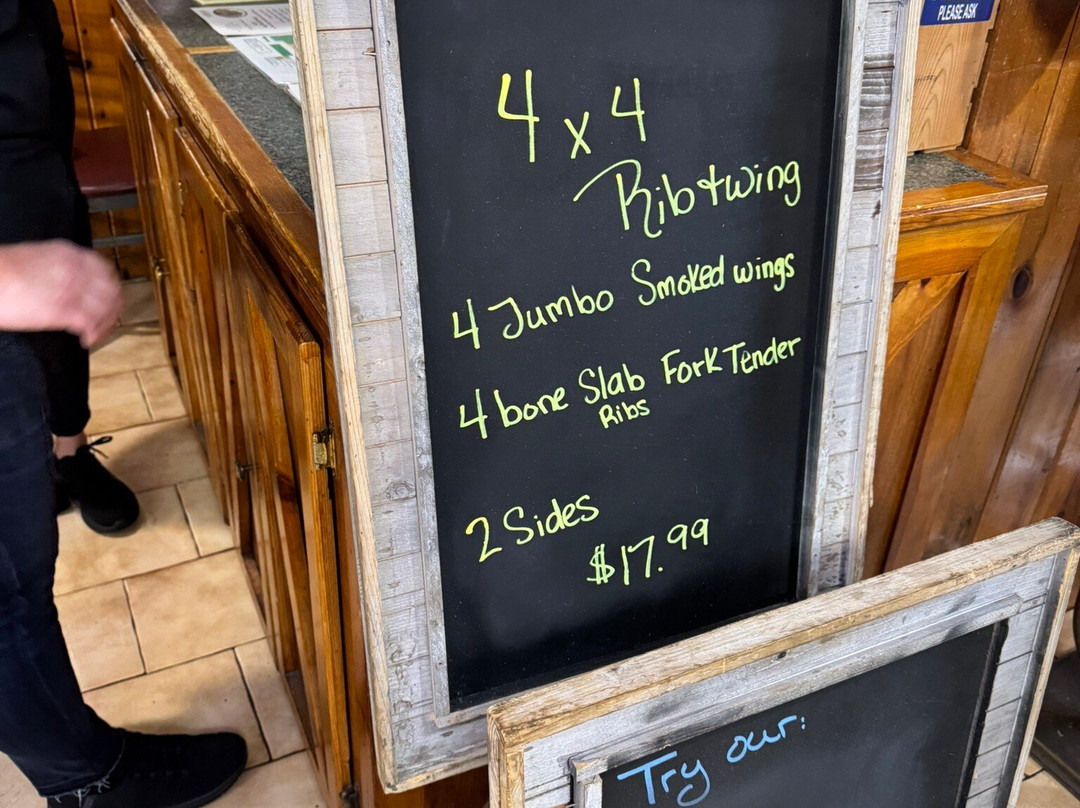 PLEASE ASK
4 x 4
Rib + wing
4 Jumbo Smoked wings
4 bone Slab Fork Tender
Ribs
2 Sides
$17.99
Try our: